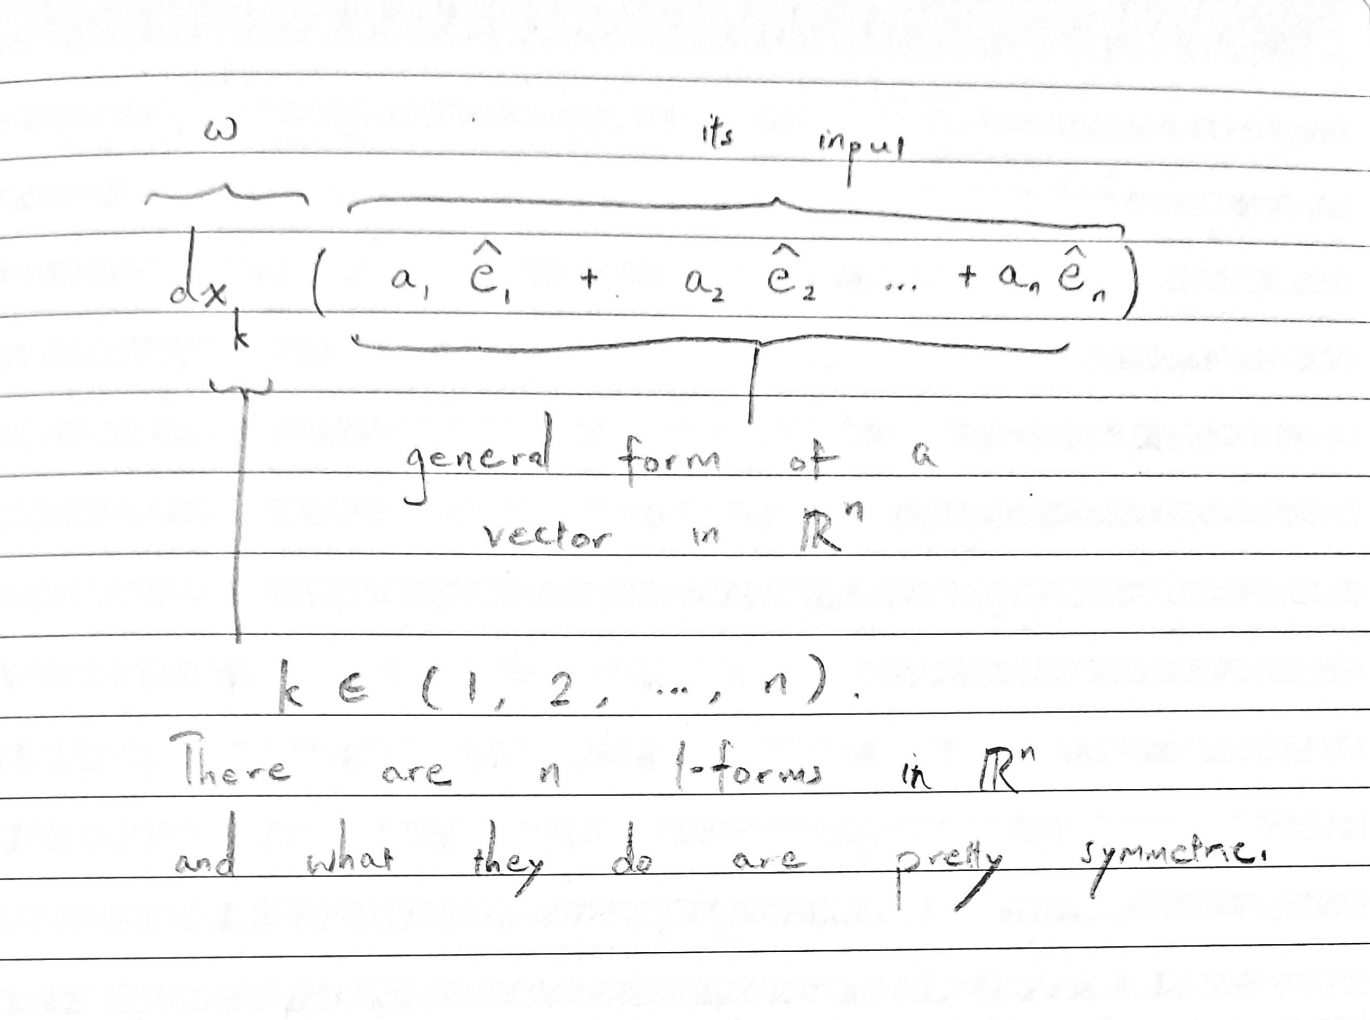 ω its input
dx_k ( a₁ ê₁ + a₂ ê₂ ... + aₙ êₙ )
general form of a
vector in ℝⁿ
k ∈ (1, 2, ..., n).
There are n 1-forms in ℝⁿ
and what they do are pretty symmetric.